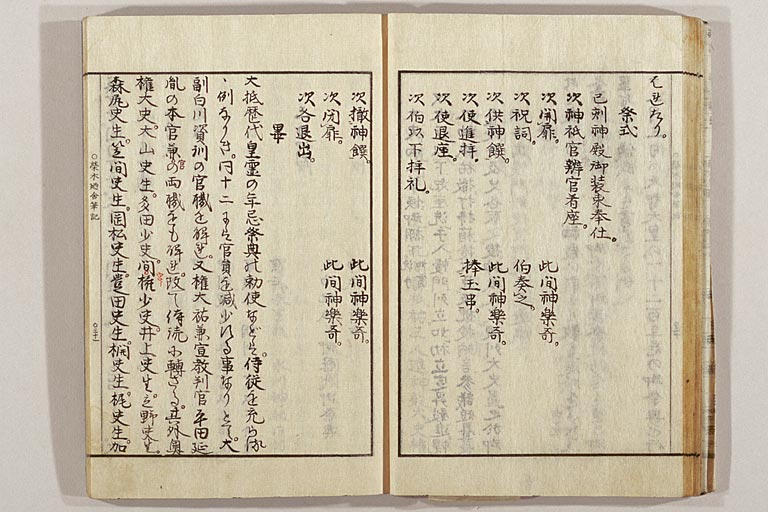 そまゝなり。
祭式
已刻神殿御装束奉仕。
次神祇官辨官着座。
次開扉。 此間神樂奇。
次祝詞。 伯奏之。
次供神饌。 此間神樂奇。
次使進拝。 捧玉串。
次使退座。
次伯以下拝礼。
次撤神饌。 此間神樂奇。
次閉扉。 此間神樂奇。
次各退出。
畢
大抵歴代皇霊の年忌祭典の勅使などは。侍従を充らる
ゝ例なりき。同十二日には官員を減少ある事なりとて。大
副白川資訓の官職を解れ。又権大祐兼宣教判官平田延
胤の本官兼官の両職をも解れ。改て侍読に轉ざる。其外奥
権大史。大山史生。多田少史。間権少史。井上史生。之野史生。
森尻史生。笠間史生。岡松史生。豊田史生。桐史生。梶史生。加
〇榮木廼舎筆記